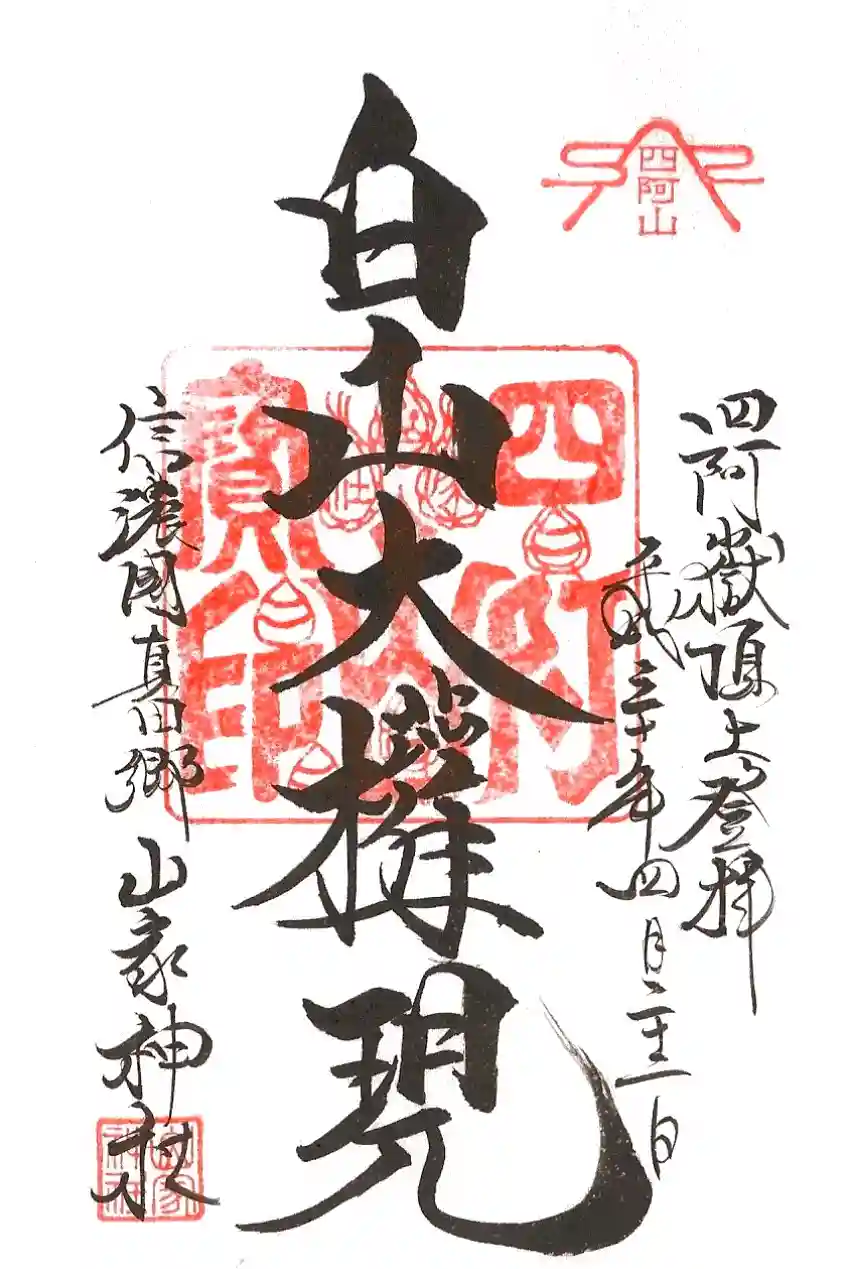 四阿山
四阿嶽頂上登拝
平成三十年四月二十二日
白山大権現
四阿山
寳印
信濃國真田郷 山家神社
山家神社